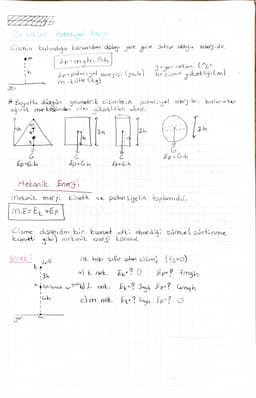 Yer çekimi Potansiyel Enerji
Cismin bulunduğu konumdan dolayı yere göre sahip olduğu enerjidir.
m
h
yer
Ep = mgh = G.h
Ep = potansiyel enerjisi (joule)
m = kütle (kg)
g = yer çekimi
h = cismin yüksekliği (m)
* Boyutlu düzgün geometrik cisimlerin potansiyel enerjileri bulunurken
ağırlık merkezinden olan yükseklikleri alınır.
2h 2h 2h
G G G G
Ep = G.h Ep = G.h Ep = G.h
Mekanik Enerji
Mekanik enerji kinetik ve potansiyelin toplamıdır.
M.E = Ek + Ep
Cisme dışarıdan bir kuvvet etki etmediği sürece (sürtünme
kuvveti gibi) mekanik enerji korunur.
Örnek:
ilk hızı sıfır olan cismin;
a) K nok. Ek = ? 0 Ep = ? 7mgh
b) L nok. Ek = ? 3mgh Ep = ? 4mgh
c) m nok. Ek = ? 7mgh Ep = ? 0
3h
4h
yer m